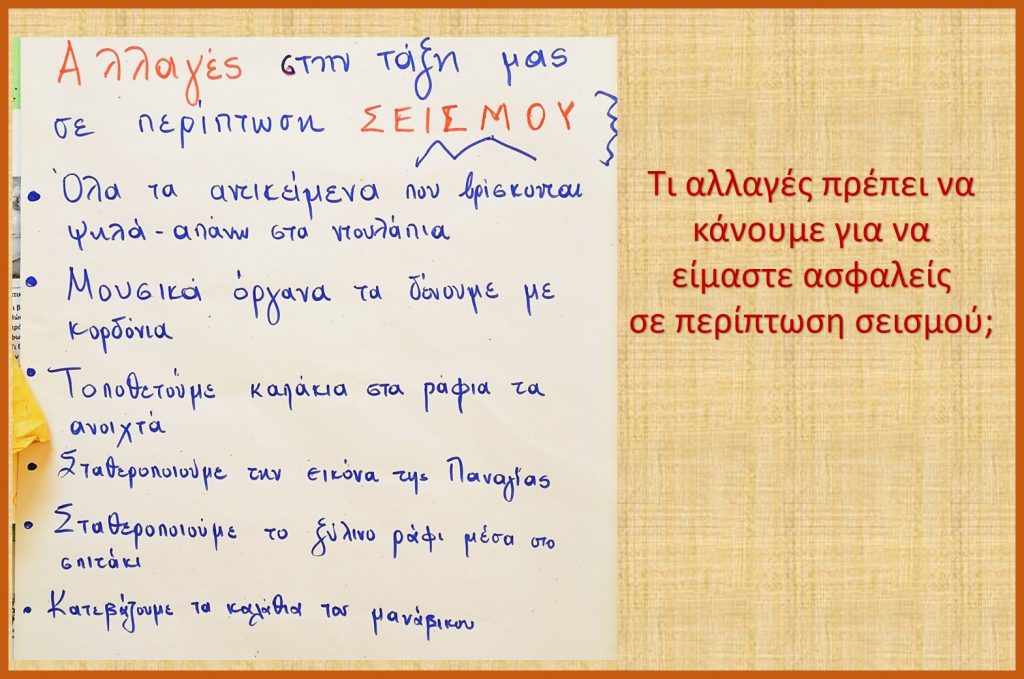 Αλλαγές στην τάξη μας
σε περίπτωση ΣΕΙΣΜΟΥ
• Όλα τα αντικείμενα που βρίσκονται
ψηλά - απάνω στα ντουλάπια
• Μουσικά όργανα τα δένουμε με
κορδόνια
• Τοποθετούμε καπάκια στα ράφια τα
ανοιχτά
• Σταθεροποιούμε την εικόνα της Παναγίας
• Σταθεροποιούμε το ξύλινο ράφι μέσα στο
σπιτάκι
• Κατεβάζουμε τα καλάθια του μανάβικου
Τι αλλαγές πρέπει να
κάνουμε για να
είμαστε ασφαλείς
σε περίπτωση σεισμού;